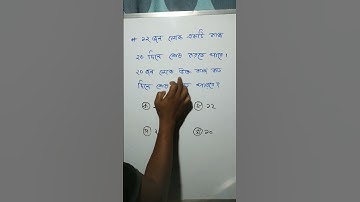 # ২২ জন লোক একটি কাজ
২০ দিনে শেষ করতে পারে।
২০ জন লোক উক্ত কাজ কত
দিনে শেষ পারবে?
ক খ ২২
গ ঘ ২০